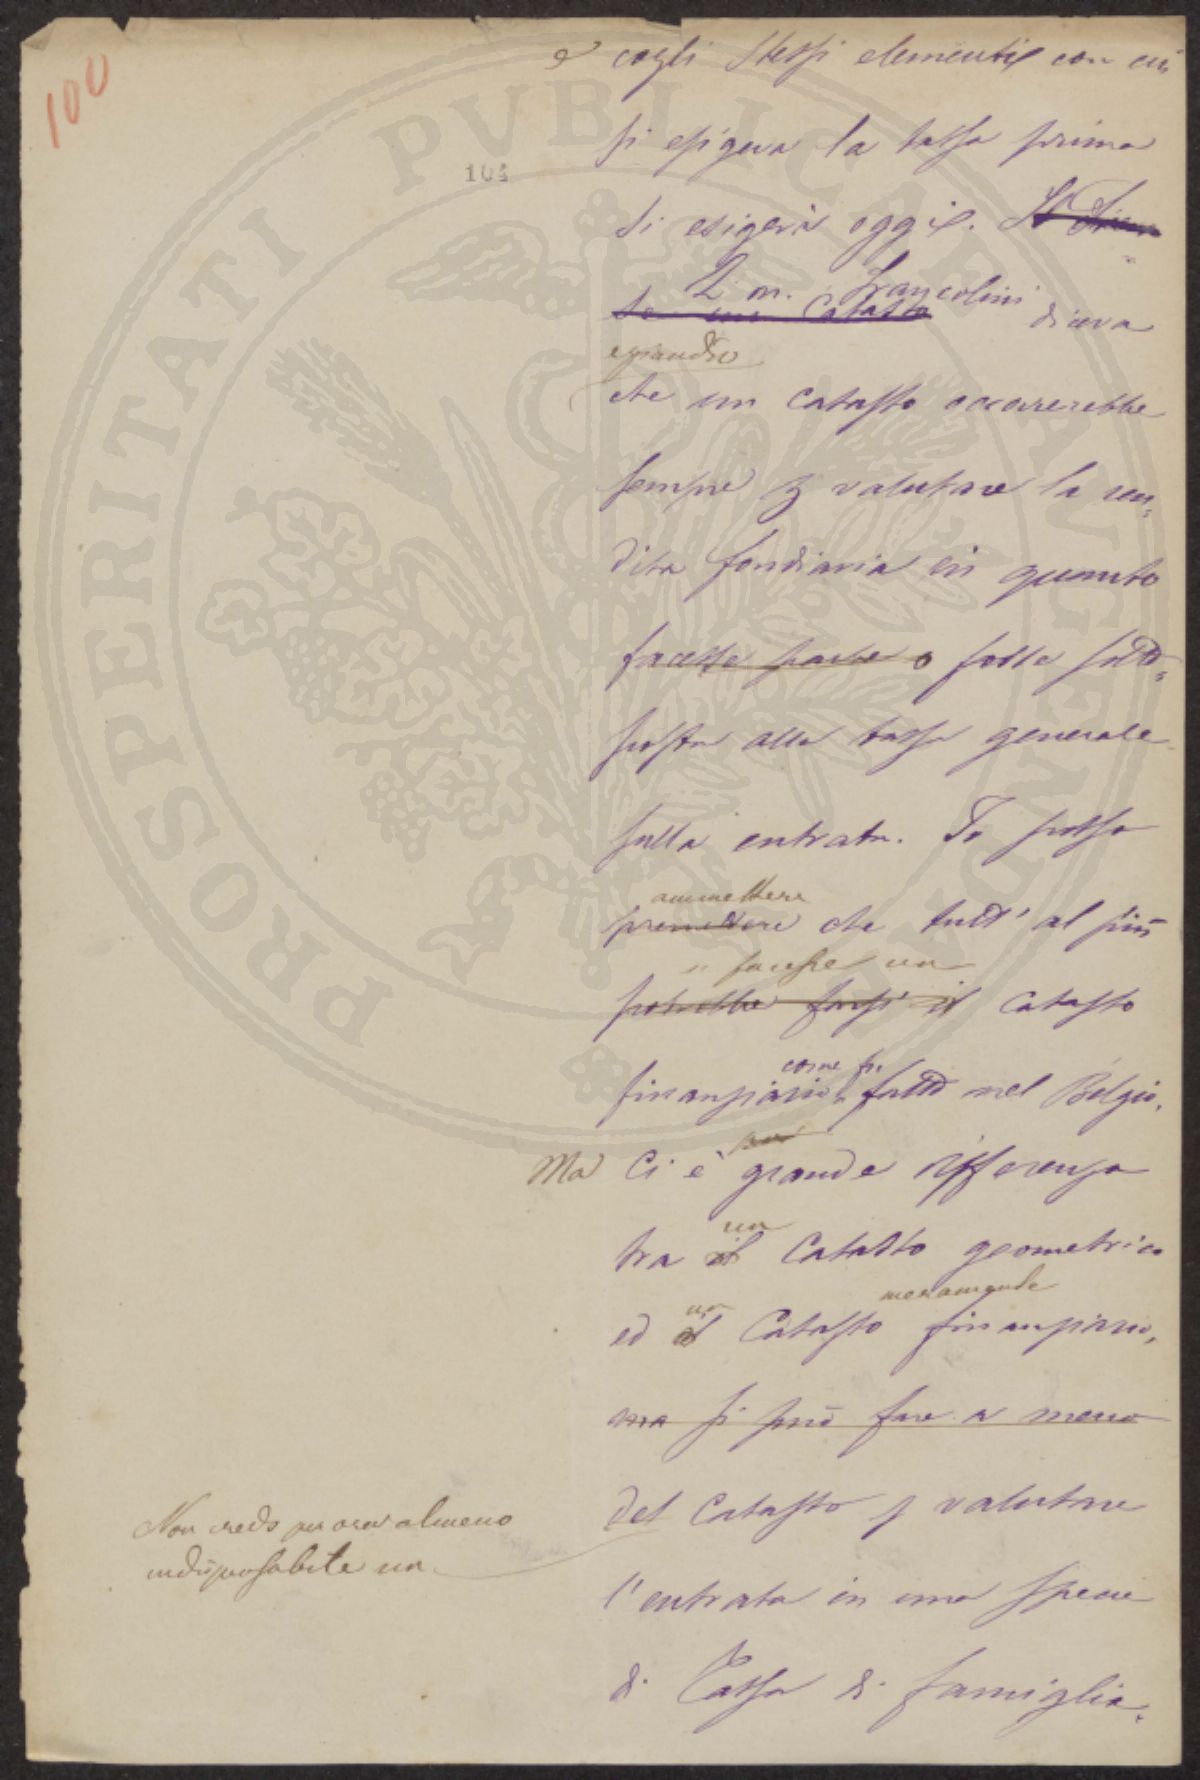 100
104
e cogli stessi elementi con cui
si esigeva la tassa prima
si esigerà oggi.
L'on. Francolini diceva
che un catasto occorrerebbe
sempre p valutare la ren-
dita fondiaria in quanto
facesse parte o fosse sotto-
posta alla tassa generale
sulla entrata. Io posso
ammettere
premettere che tutt'al più
si facesse un
potrebbe farsi il catasto
come si
finanziario fatto nel Belgio.
Ma Ci è grande differenza
un
tra il Catasto geometrico
meramente
un
ed il Catasto finanziario,
ma si può fare a meno
Non credo per ora almeno
indispensabile un
del Catasto p valutare
l'entrata in una specie
di Tassa di famiglia.
PROSPERITATI PVBLICAE AVGENDAE